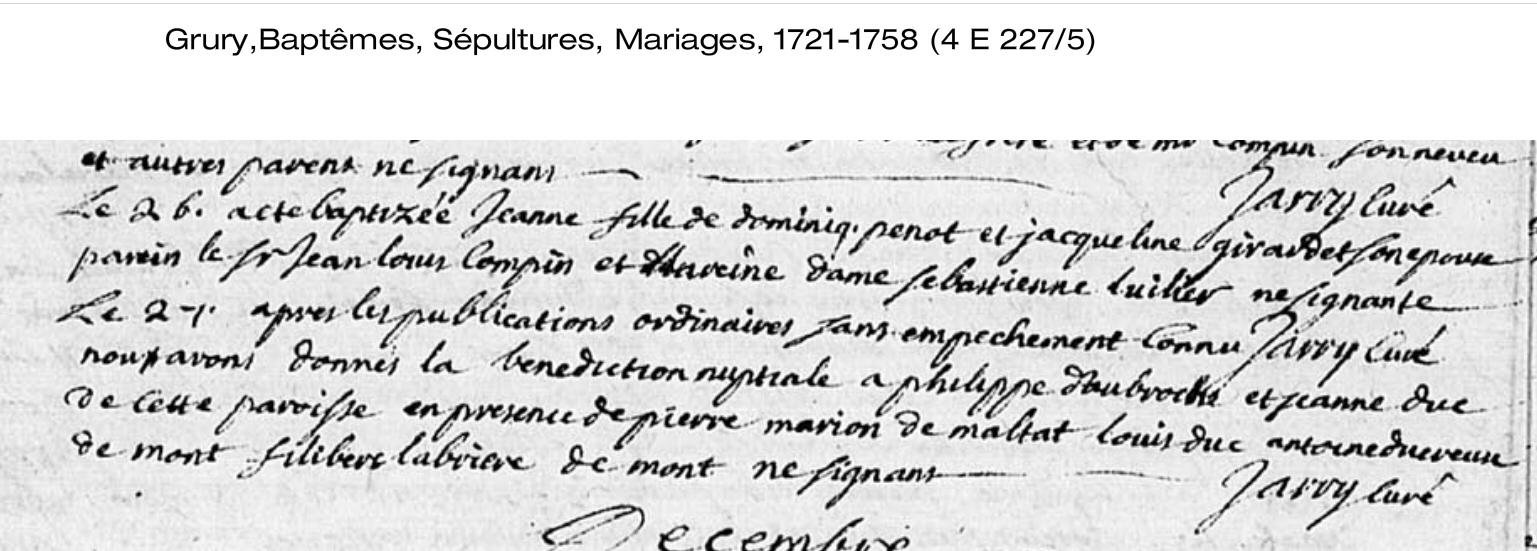 Grury,Baptêmes, Sépultures, Mariages, 1721-1758 (4 E 227/5)
et de mr Compin son neveu
et autres parent ne signans
Jarry Curé
Le 26. a ete baptizéé Jeanne fille de dominiq. penot et jacqueline girardet son epouse
parein le sr Jean louis Compin et Mareine dame sebastienne luilier ne signante
Jarry Curé
Le 27. apres les publications ordinaires sans empechement connu
nous avons donnés la benediction nuptiale a philippe et jeanne duc
de cette paroisse en presence de pierre marion de maltat louis duc antoine
de mont filibert labriere de mont ne signans
Jarry Curé
Decembre